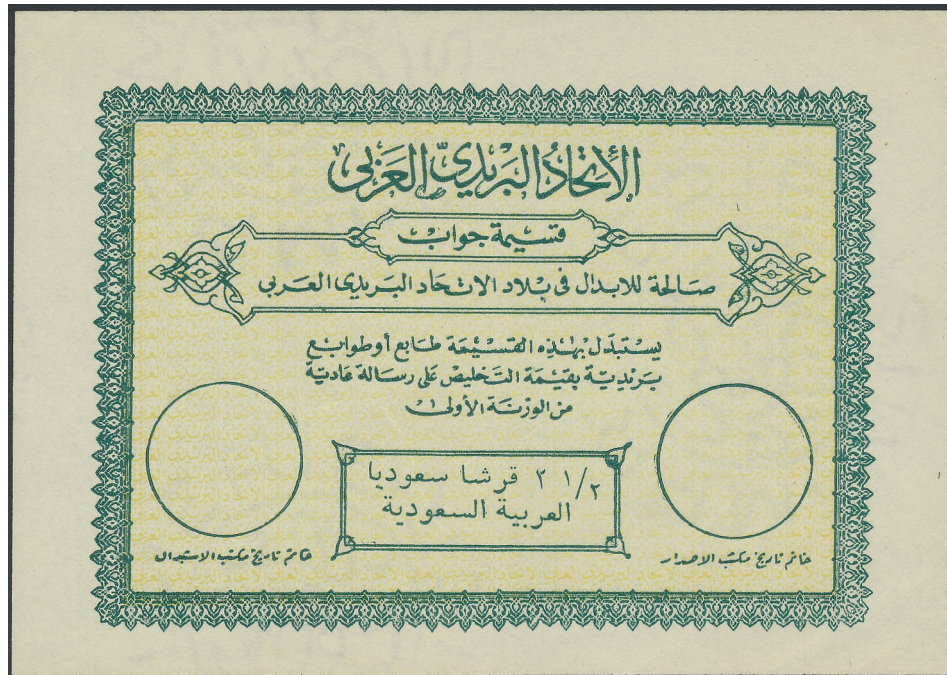 الإتحاد البريدي العربي
قسيمة جواب
صالحة للابدال فى بلاد الاتحاد البريدى العربي
يستبدل بهذه القسيمة طابع أو طوابع
بريدية بقيمة التخليص على رسالة عادية
من الوزنة الأولى
٣ ١/٢ قرشا سعوديا
العربية السعودية
خاتم تاريخ مكتب الاصدار
خاتم تاريخ مكتب الاستبدال